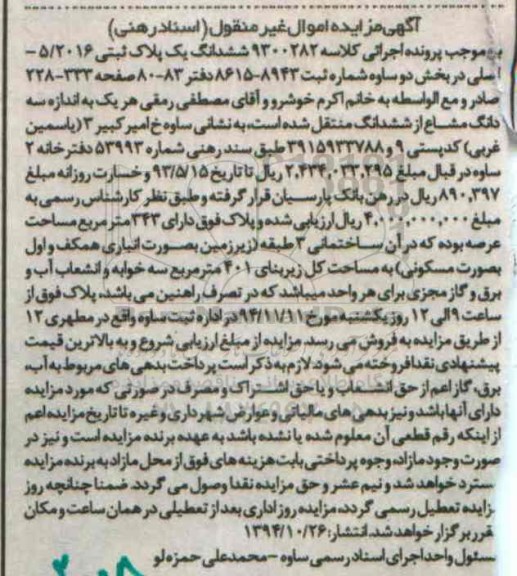 آگهی مزایده اموال غیر منقول (اسناد رهنی)
به موجب پرونده اجرائی کلاسه ۹۳۰۰۲۸۲ ششدانگ یک پلاک ثبتی ۵/۲۰۱۶ –
اصلی در بخش دو ساوه شماره ثبت ۸۹۴۳-۸۶۱۵ دفتر ۸۳-۸۰ صفحه ۳۳۳-۲۲۸
صادر و مع الواسطه به خانم اکرم خوشرو و آقای مصطفی رمقی هر یک به اندازه سه
دانگ مشاع از ششدانگ منتقل شده است، به نشانی ساوه خ امیر کبیر ۳ (یاسمین
غربی) کدپستی ۹ و ۳۹۱۵۹۳۳۷۸۸ طبق سند رهنی شماره ۵۳۹۹۳ دفترخانه ۲
ساوه در قبال مبلغ ۲,۴۳۴,۰۳۳,۲۹۵ ریال تا تاریخ ۹۳/۵/۱۵ و خسارت روزانه مبلغ
۸۹۰,۳۹۷ ریال در رهن بانک پارسیان قرار گرفته و طبق نظر کارشناس رسمی به
مبلغ ۴,۰۰۰,۰۰۰,۰۰۰ ریال ارزیابی شده و پلاک فوق دارای ۳۴۳ متر مربع مساحت
عرصه بوده که در آن ساختمانی ۳ طبقه (زیرزمین بصورت انباری همکف و اول
بصورت مسکونی) به مساحت کل زیربنای ۴۰۱ مترمربع سه خوابه و انشعاب آب و
برق و گاز مجزی برای هر واحد میباشد که در تصرف راهنین می باشد، پلاک فوق از
ساعت ۹ الی ۱۲ روز یکشنبه مورخ ۹۴/۱۱/۱۱ در اداره ثبت ساوه واقع در مطهری ۱۲
از طریق مزایده به فروش می رسد. مزایده از مبلغ ارزیابی شروع و به بالاترین قیمت
پیشنهادی نقدا فروخته می شود. لازم به ذکر است پرداخت بدهی های مربوط به آب،
برق، گاز اعم از حق انشعاب و یا حق اشتراک و مصرف در صورتی که مورد مزایده
دارای آنها باشد و نیز بدهی های مالیاتی و عوارض شهرداری و غیره تا تاریخ مزایده اعم
از اینکه رقم قطعی آن معلوم شده یا نشده باشد به عهده برنده مزایده است و نیز در
صورت وجود مازاد، وجوه پرداختی بابت هزینه های فوق از محل مازاد به برنده مزایده
مسترد خواهد شد و نیم عشر و حق مزایده نقدا وصول می گردد. ضمنا چنانچه روز
مزایده تعطیل رسمی گردد، مزایده روز اداری بعد از تعطیلی در همان ساعت و مکان
مقرر برگزار خواهد شد. انتشار: ۱۳۹۴/۱۰/۲۶
مسئول واحد اجرای اسناد رسمی ساوه - محمدعلی حمزه لو